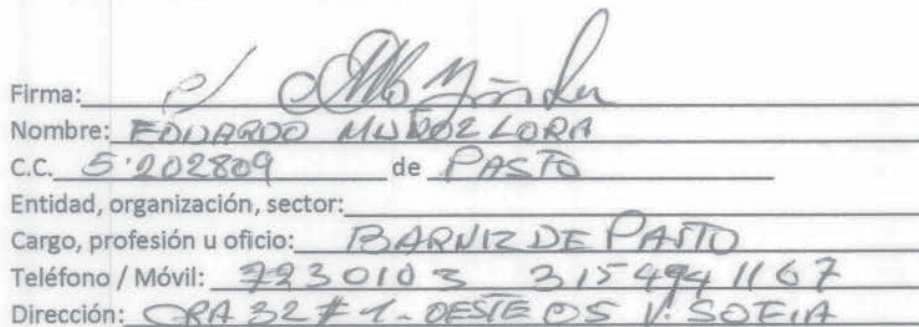 Firma:
Nombre: EDUARDO MUÑOZ LORA
C.C. 5'202809 de PASTO
Entidad, organización, sector:
Cargo, profesión u oficio: BARNIZ DE PASTO
Teléfono / Móvil: 7230103 315 494 1167
Dirección: CRA 32 # 1 - OESTE 05 V. SOFIA